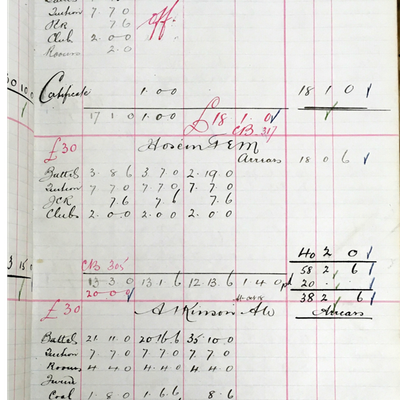 Tuition 7 7 0
JCR 7.6
Club 2.0.0 off.
Rooms 2.0
30 10 0
Certificate 1.0.0 18 1 0
17 1 0 1.0.0 £18 1.0
CB 317
£30 Hosein F E M
Arrears 18 0 6
Battels 3.8.6 3 7 0 2.19.0
Tuition 7 7 0 7 7 0 7.7.0
JCR 7.6 7.6 7.6
Clubs 2.0.0 2.0.0 2.0.0
40 2 0
3 15 0 CB 305 58 2 6
13 3 0 13 1 6 12 13.6 1 4 0 pd 20 . .
20 0 0 38 2 6
£30 Atkinson A W Arrears
Battels 21.11.0 20 16 6 35 10.0
Tuition 7.7.0 7.7.0 7.7.0
Rooms 4.4.0 4.4.0 4.4.0
Furn
Coal 1.8.0 1.6.6 8.6